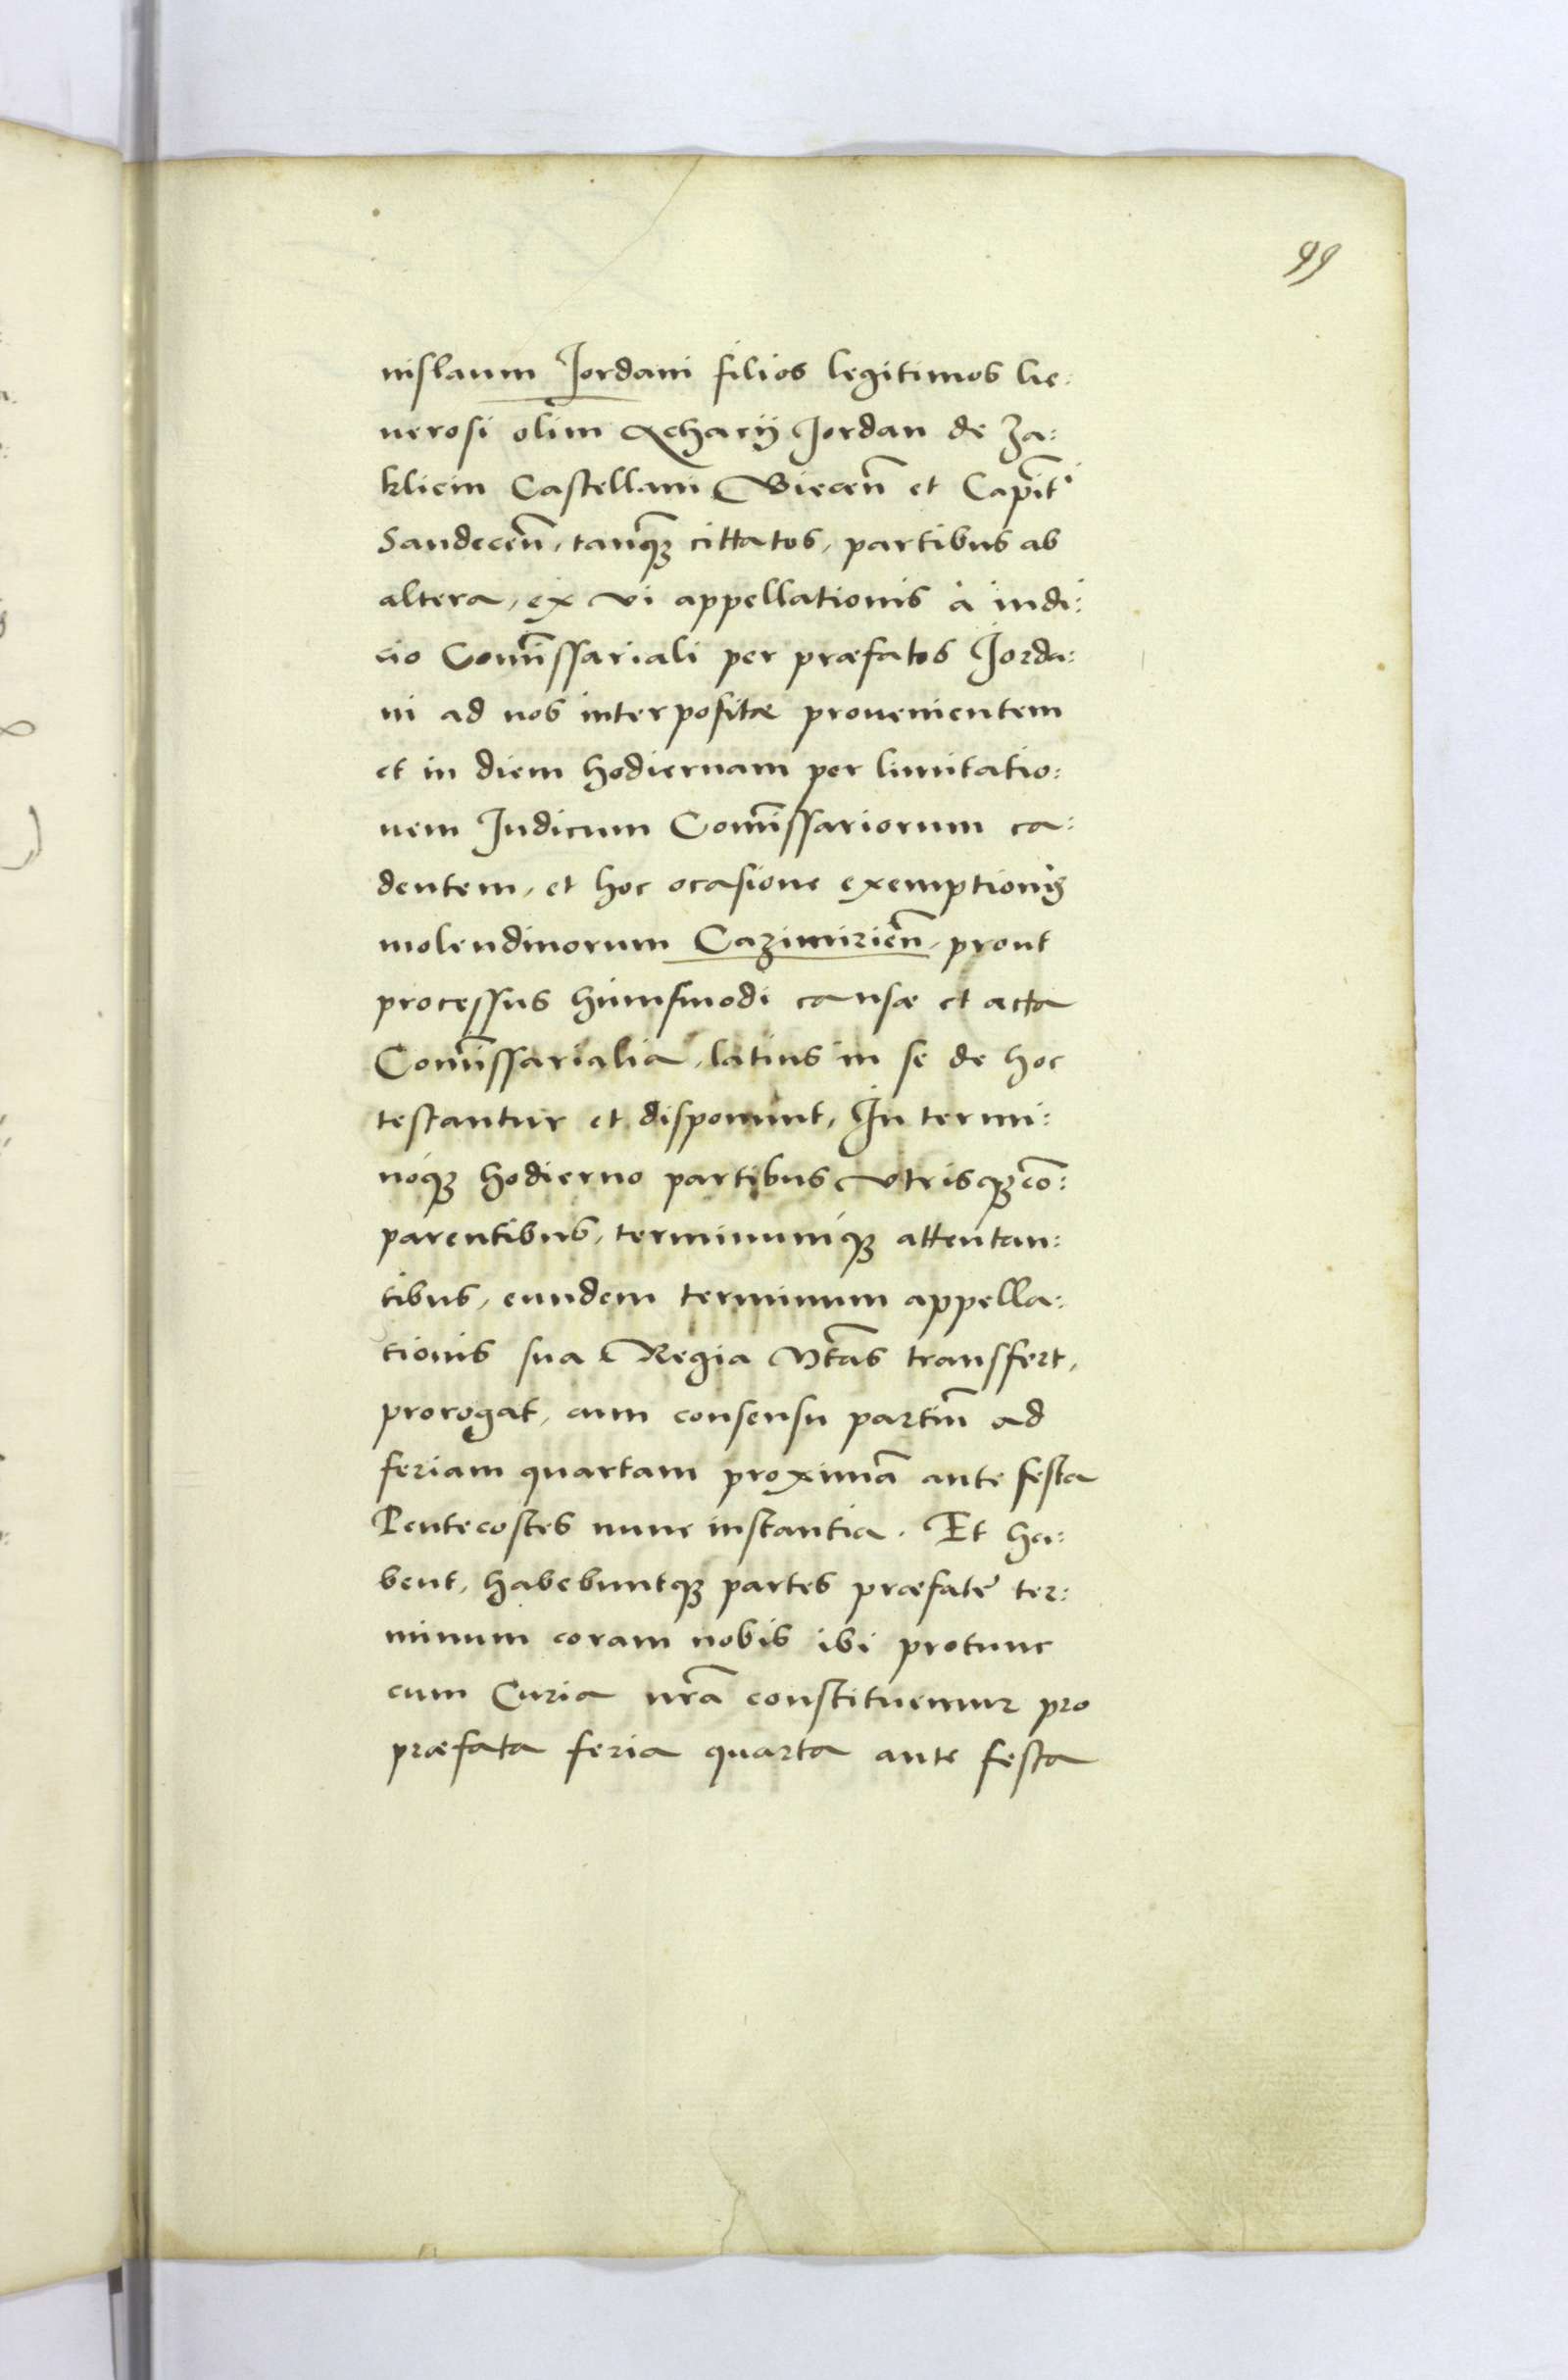 99
nislaum Jordani filios legitimos Ge:
nerosi olim Achacij Jordan de Za:
kliczin Castellani Biecen̄ et Capit̄
Sandecen̄, tanq̄ꝫ cittatos, partibus ab
altera, ex vi appellationis à iudi:
cio Com̄issariali per præfatos Jorda:
ni ad nos interpositæ prouenientem
et in diem hodiernam per limitatio:
nem Judicum Com̄issariorum ca:
dentem, et hoc ocasione exemptionis
molendinorum Cazimirien̄, prout
processus huiusmodi causæ et acta
Com̄issarialia, latius in se de hoc
testantur et disponunt, In termi:
noqꝫ hodierno partibus vtrisqꝫ cō:
parentibus, terminumqꝫ attentan:
tibus, eundem terminum appella:
tionis sua Regia Mt̄as transfert,
prorogat, cum consensu partiū ad
feriam quartam proximā ante festa
Pentecostes nunc instantia. Et ha:
bent, habebuntqꝫ partes præfatę ter:
minum coram nobis ibi protunc
cum Curia nr̄a constituemur pro
præfata feria quarta ante festa